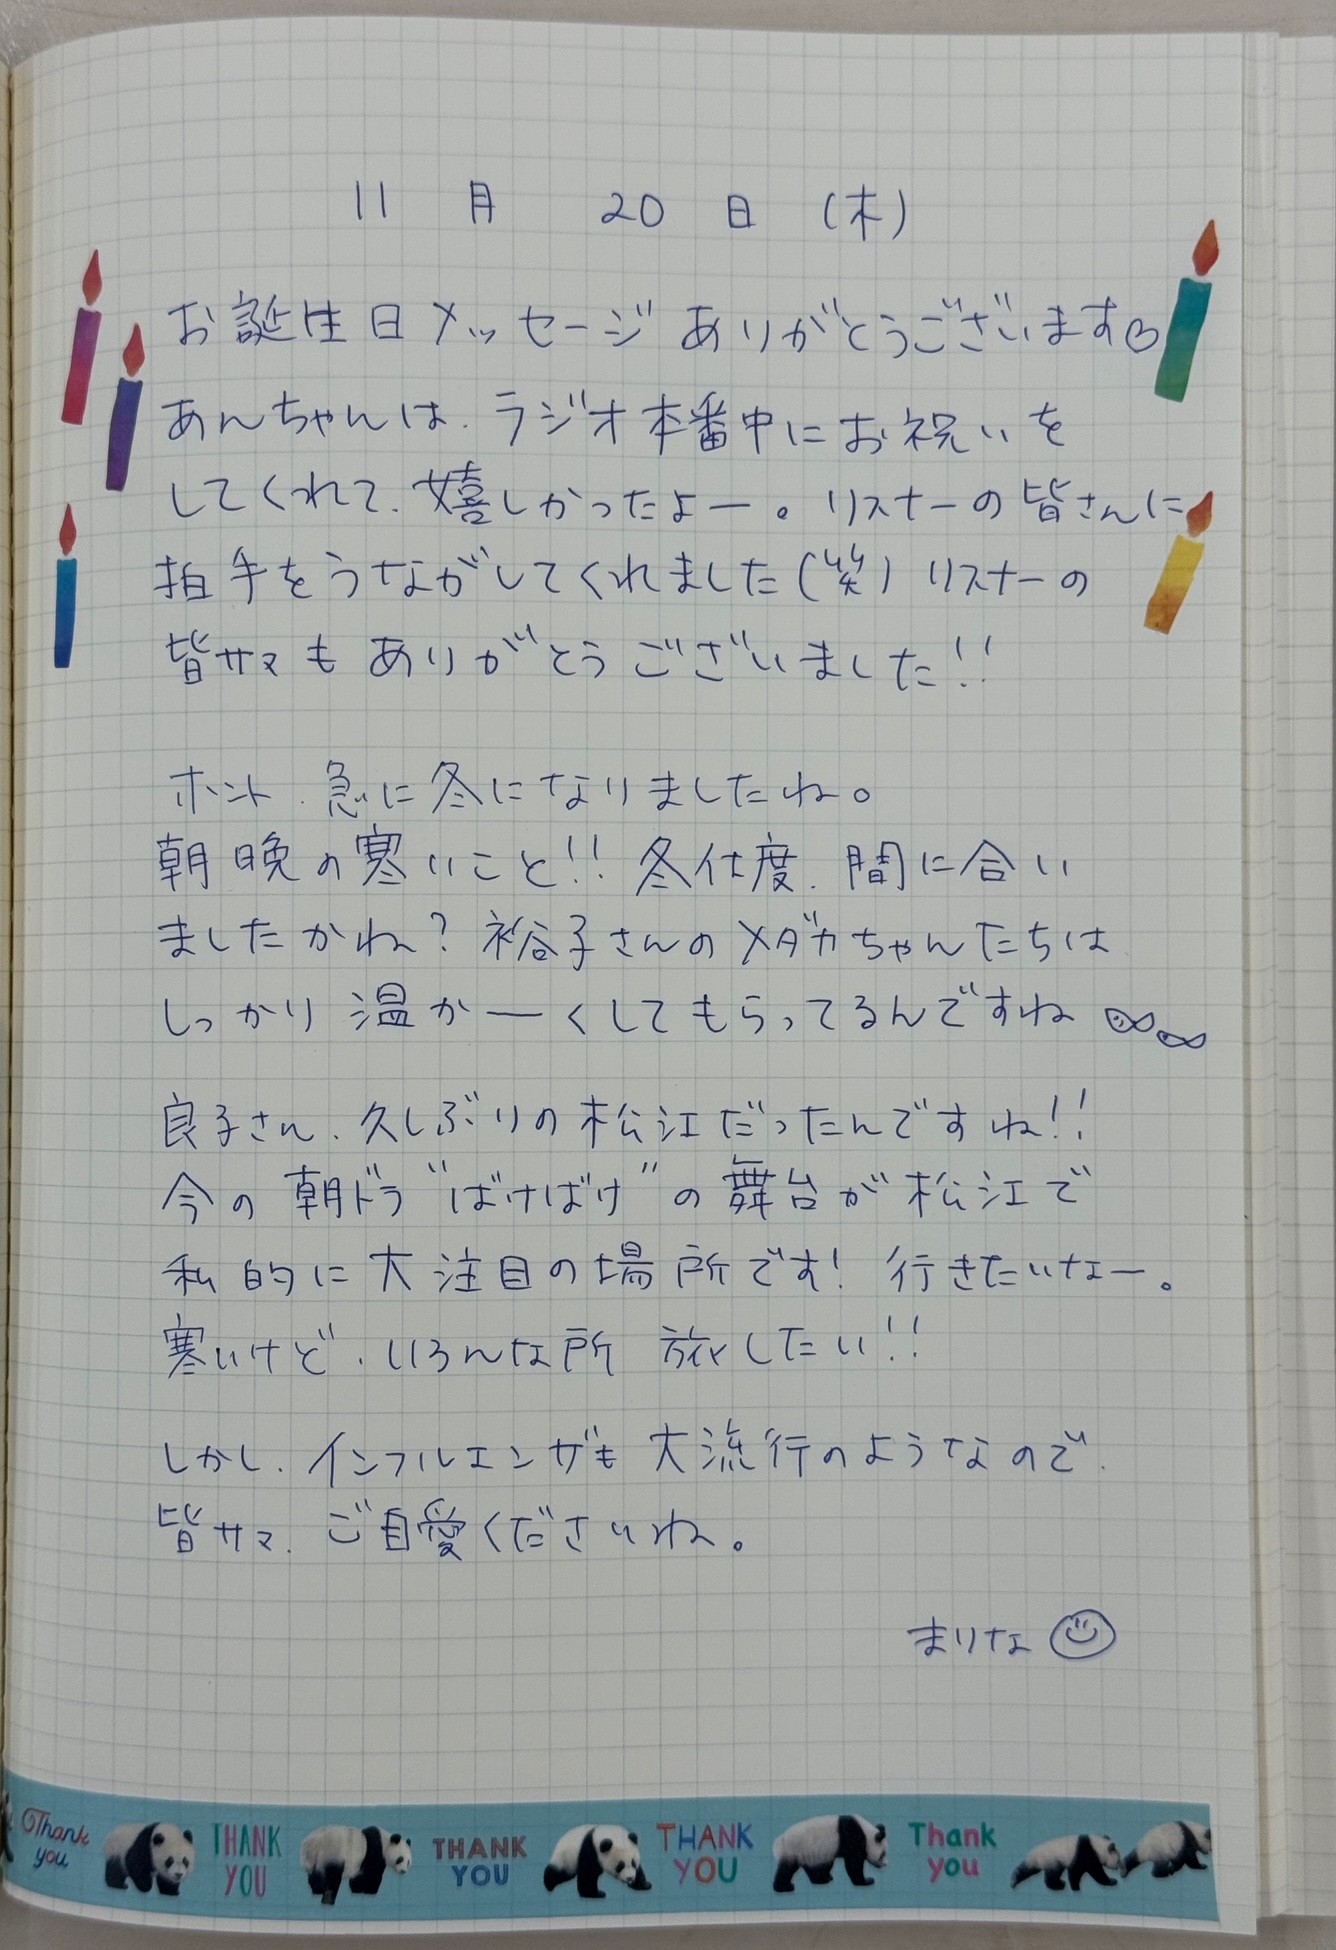 11月 20日 (木)
お誕生日メッセージありがとうございます♡
あんちゃんは、ラジオ本番中にお祝いを
してくれて、嬉しかったよー。リスナーの皆さんに
拍手をうながしてくれました(笑) リスナーの
皆サマもありがとうございました!!
ホント、急に冬になりましたね。
朝晩の寒いこと!! 冬仕度、間に合い
ましたかね? 裕子さんのメダカちゃんたちは
しっかり温かーくしてもらってるんですね
良子さん、久しぶりの松江だったんですね!!
今の朝ドラ"ばけばけ"の舞台が松江で
私的に大注目の場所です! 行きたいなー。
寒いけど、いろんな所 旅したい!!
しかし、インフルエンザも大流行のようなので、
皆サマ、ご自愛くださいね。
まりな
Thank you THANK YOU THANK YOU THANK YOU Thank you